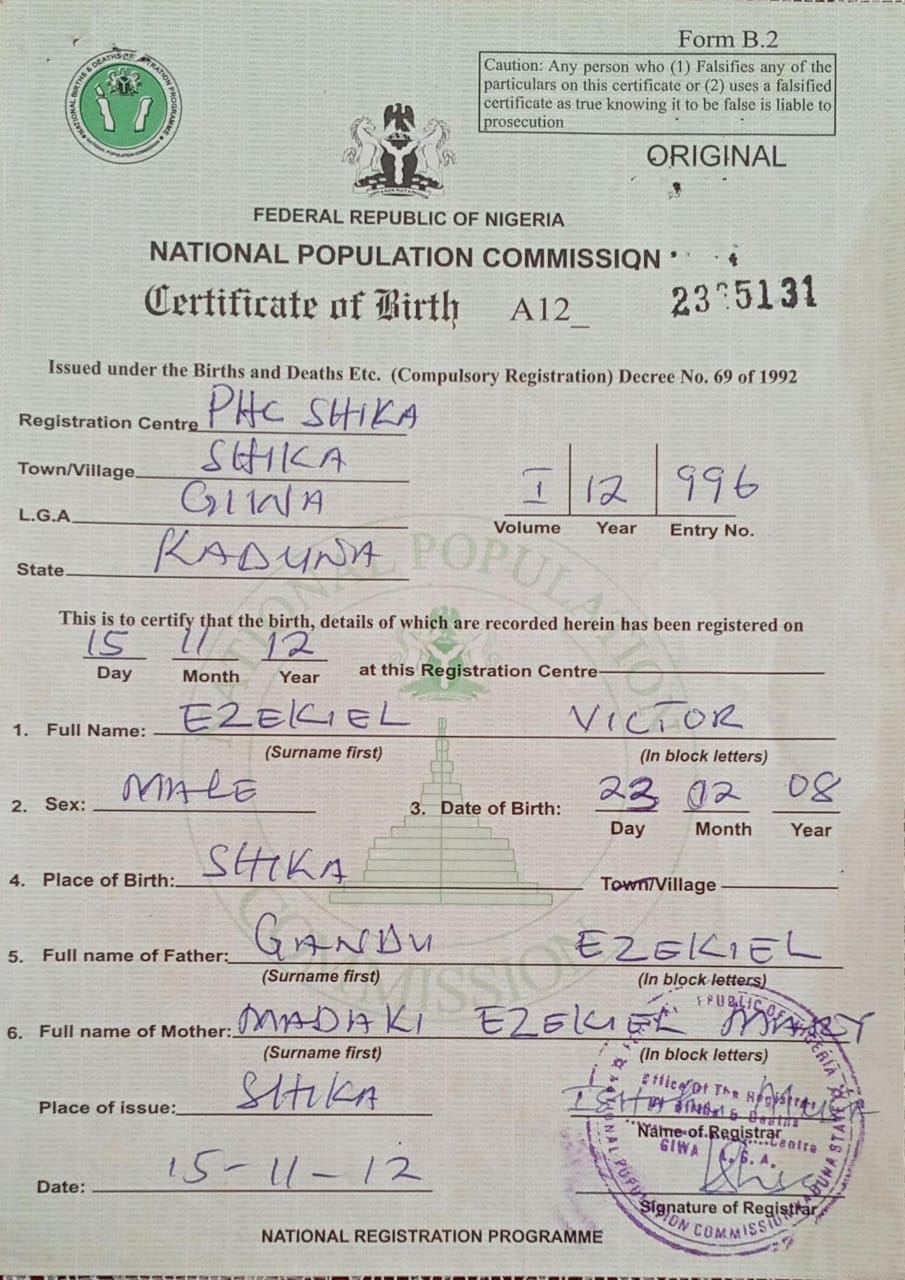 Form B.2
Caution: Any person who (1) Falsifies any of the
particulars on this certificate or (2) uses a falsified
certificate as true knowing it to be false is liable to
prosecution
ORIGINAL
NATIONAL BIRTHS & DEATHS REGISTRATION PROGRAMME
NATIONAL POPULATION COMMISSION
FEDERAL REPUBLIC OF NIGERIA
NATIONAL POPULATION COMMISSION
Certificate of Birth A12_ 23 5131
Issued under the Births and Deaths Etc. (Compulsory Registration) Decree No. 69 of 1992
Registration Centre PHC SHIKA
Town/Village SHIKA
L.G.A GIWA
State KADUNA
I 12 996
Volume Year Entry No.
This is to certify that the birth, details of which are recorded herein has been registered on
15 11 12
Day Month Year at this Registration Centre
1. Full Name: EZEKIEL VICTOR
(Surname first) (In block letters)
2. Sex: MALE 3. Date of Birth: 23 02 08
Day Month Year
4. Place of Birth: SHIKA Town/Village
5. Full name of Father: GANDU EZEKIEL
(Surname first) (In block letters)
6. Full name of Mother: MADAKI EZEKIEL MARY
(Surname first) (In block letters)
Place of issue: SHIKA
Name of Registrar
Date: 15-11-12
Signature of Registrar
Office Of The Registrar
Of Births & Deaths
Centre
GIWA L.G.A.
NATIONAL POPULATION COMMISSION KADUNA STATE
NATIONAL REGISTRATION PROGRAMME
NATIONAL POPULATION COMMISSION